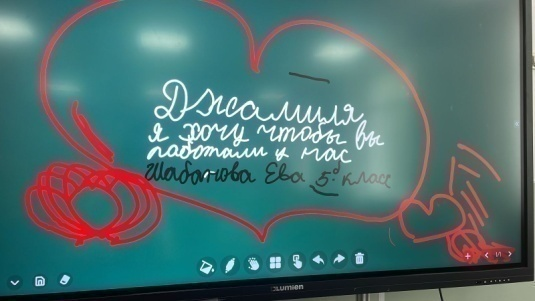 Джамиля
я хочу чтобы вы
работали у нас
Шабанова Ева 5 класс
1/1
Lumien